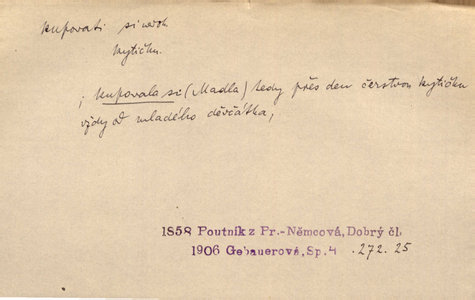 kupovati si
kytičku
; kupovala si (Madla) tedy přes den čerstvou kytičku
vždy od mladého děvčátka,
1858 Poutník z Pr.-Němcová, Dobrý čl.
1906 Gebauerová, Sp. 4 . 272. 25